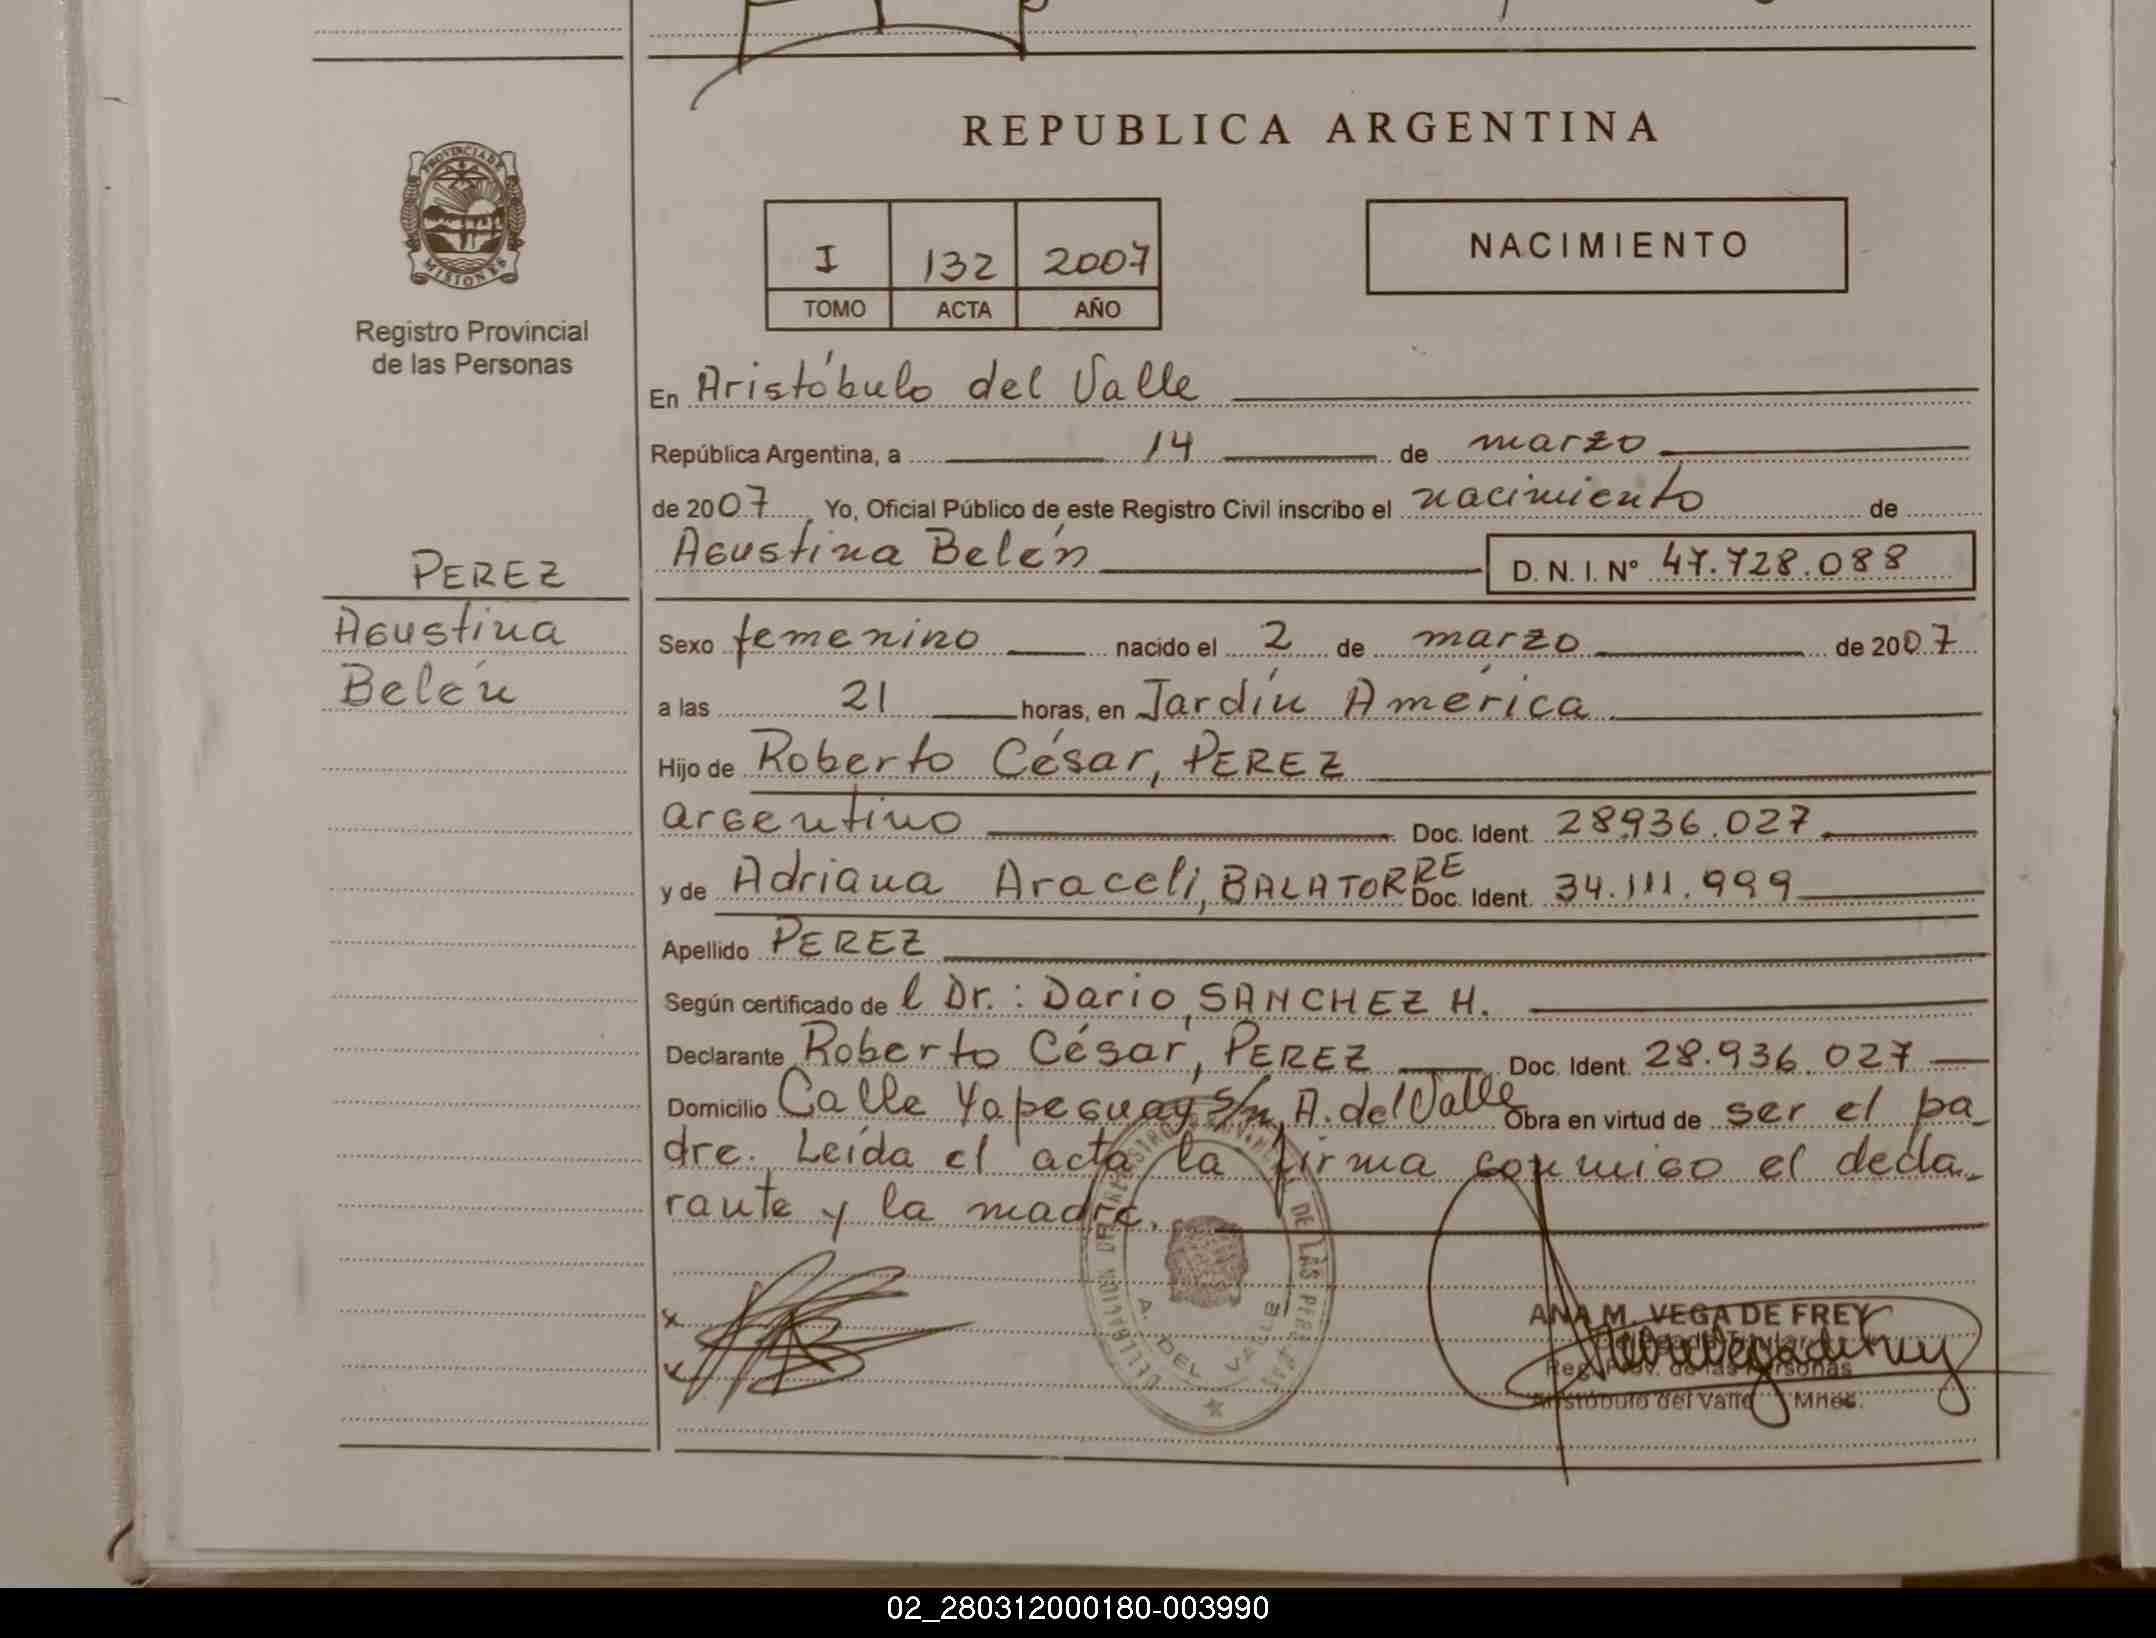 REPUBLICA ARGENTINA
PROVINCIA DE
MISIONES
Registro Provincial
de las Personas
I 132 2007
TOMO ACTA AÑO
NACIMIENTO
En Aristóbulo del Valle
República Argentina, a 14 de marzo
de 2007 Yo, Oficial Público de este Registro Civil inscribo el nacimiento de
Agustina Belén D. N. I. N° 47.728.088
PEREZ
Agustina
Belén
Sexo femenino nacido el 2 de marzo de 2007
a las 21 horas, en Jardín América
Hijo de Roberto César, PEREZ
argentino Doc. Ident. 28936.027
y de Adriana Araceli, BALATORRE Doc. Ident. 34.111.999
Apellido PEREZ
Según certificado de l Dr.: Dario, SANCHEZ H.
Declarante Roberto César, PEREZ Doc. Ident. 28.936.027
Domicilio Calle Yapeguay s/n, A. del Valle Obra en virtud de ser el pa_
dre. Leída el acta la firma conmigo el decla_
rante y la madre.
REGISTRO PROVINCIAL DE LAS PERSONAS
A. DEL VALLE
x
x
ANA M. VEGA DE FREY
Delegada Titular
Reg. Prov. de las Personas
Aristóbulo del Valle Mnes.
02_280312000180-003990